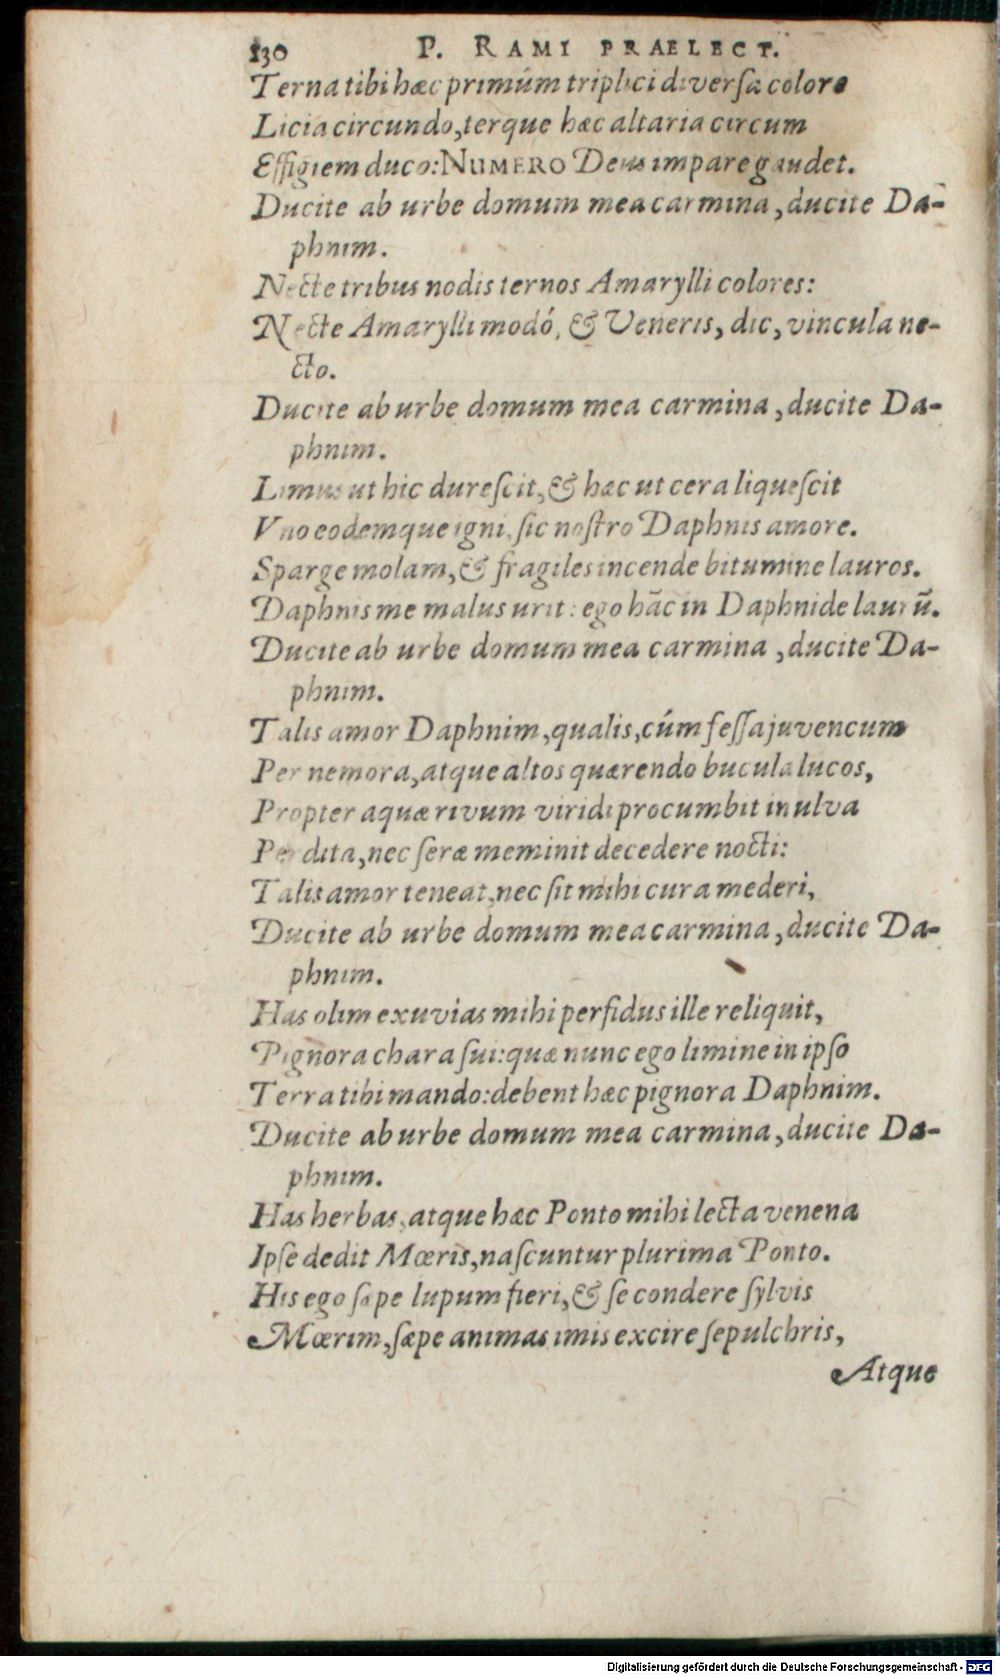 130 P. RAMI PRAELECT.
Terna tibi hæc primúm triplici diversa colore
Licia circundo, terque hæc altaria circum
Effigiem duco: NUMERO Deus impare gaudet.
Ducite ab urbe domum mea carmina, ducite Da-
phnim.
Necte tribus nodis ternos Amarylli colores:
Necte Amarylli modó, & Veneris, dic, vincula ne-
cto.
Ducite ab urbe domum mea carmina, ducite Da-
phnim.
Limus ut hic durescit, & hæc ut cera liquescit
Vno eodemque igni, sic nostro Daphnis amore.
Sparge molam, & fragiles incende bitumine lauros.
Daphnis me malus urit: ego hāc in Daphnide laurū.
Ducite ab urbe domum mea carmina, ducite Da-
phnim.
Talis amor Daphnim, qualis, cúm fessa juvencum
Per nemora, atque altos quærendo bucula lucos,
Propter aquæ rivum viridi procumbit in ulva
Perdita, nec seræ meminit decedere nocti:
Talis amor teneat, nec sit mihi cura mederi,
Ducite ab urbe domum mea carmina, ducite Da-
phnim.
Has olim exuvias mihi perfidus ille reliquit,
Pignora chara sui: quæ nunc ego limine in ipso
Terra tibi mando: debent hæc pignora Daphnim.
Ducite ab urbe domum mea carmina, ducite Da-
phnim.
Has herbas, atque hæc Ponto mihi lecta venena
Ipse dedit Mœris, nascuntur plurima Ponto.
His ego sæpe lupum fieri, & se condere sylvis
Mœrim, sæpe animas imis excire sepulchris,
Atque
Digitalisierung gefördert durch die Deutsche Forschungsgemeinschaft - DFG